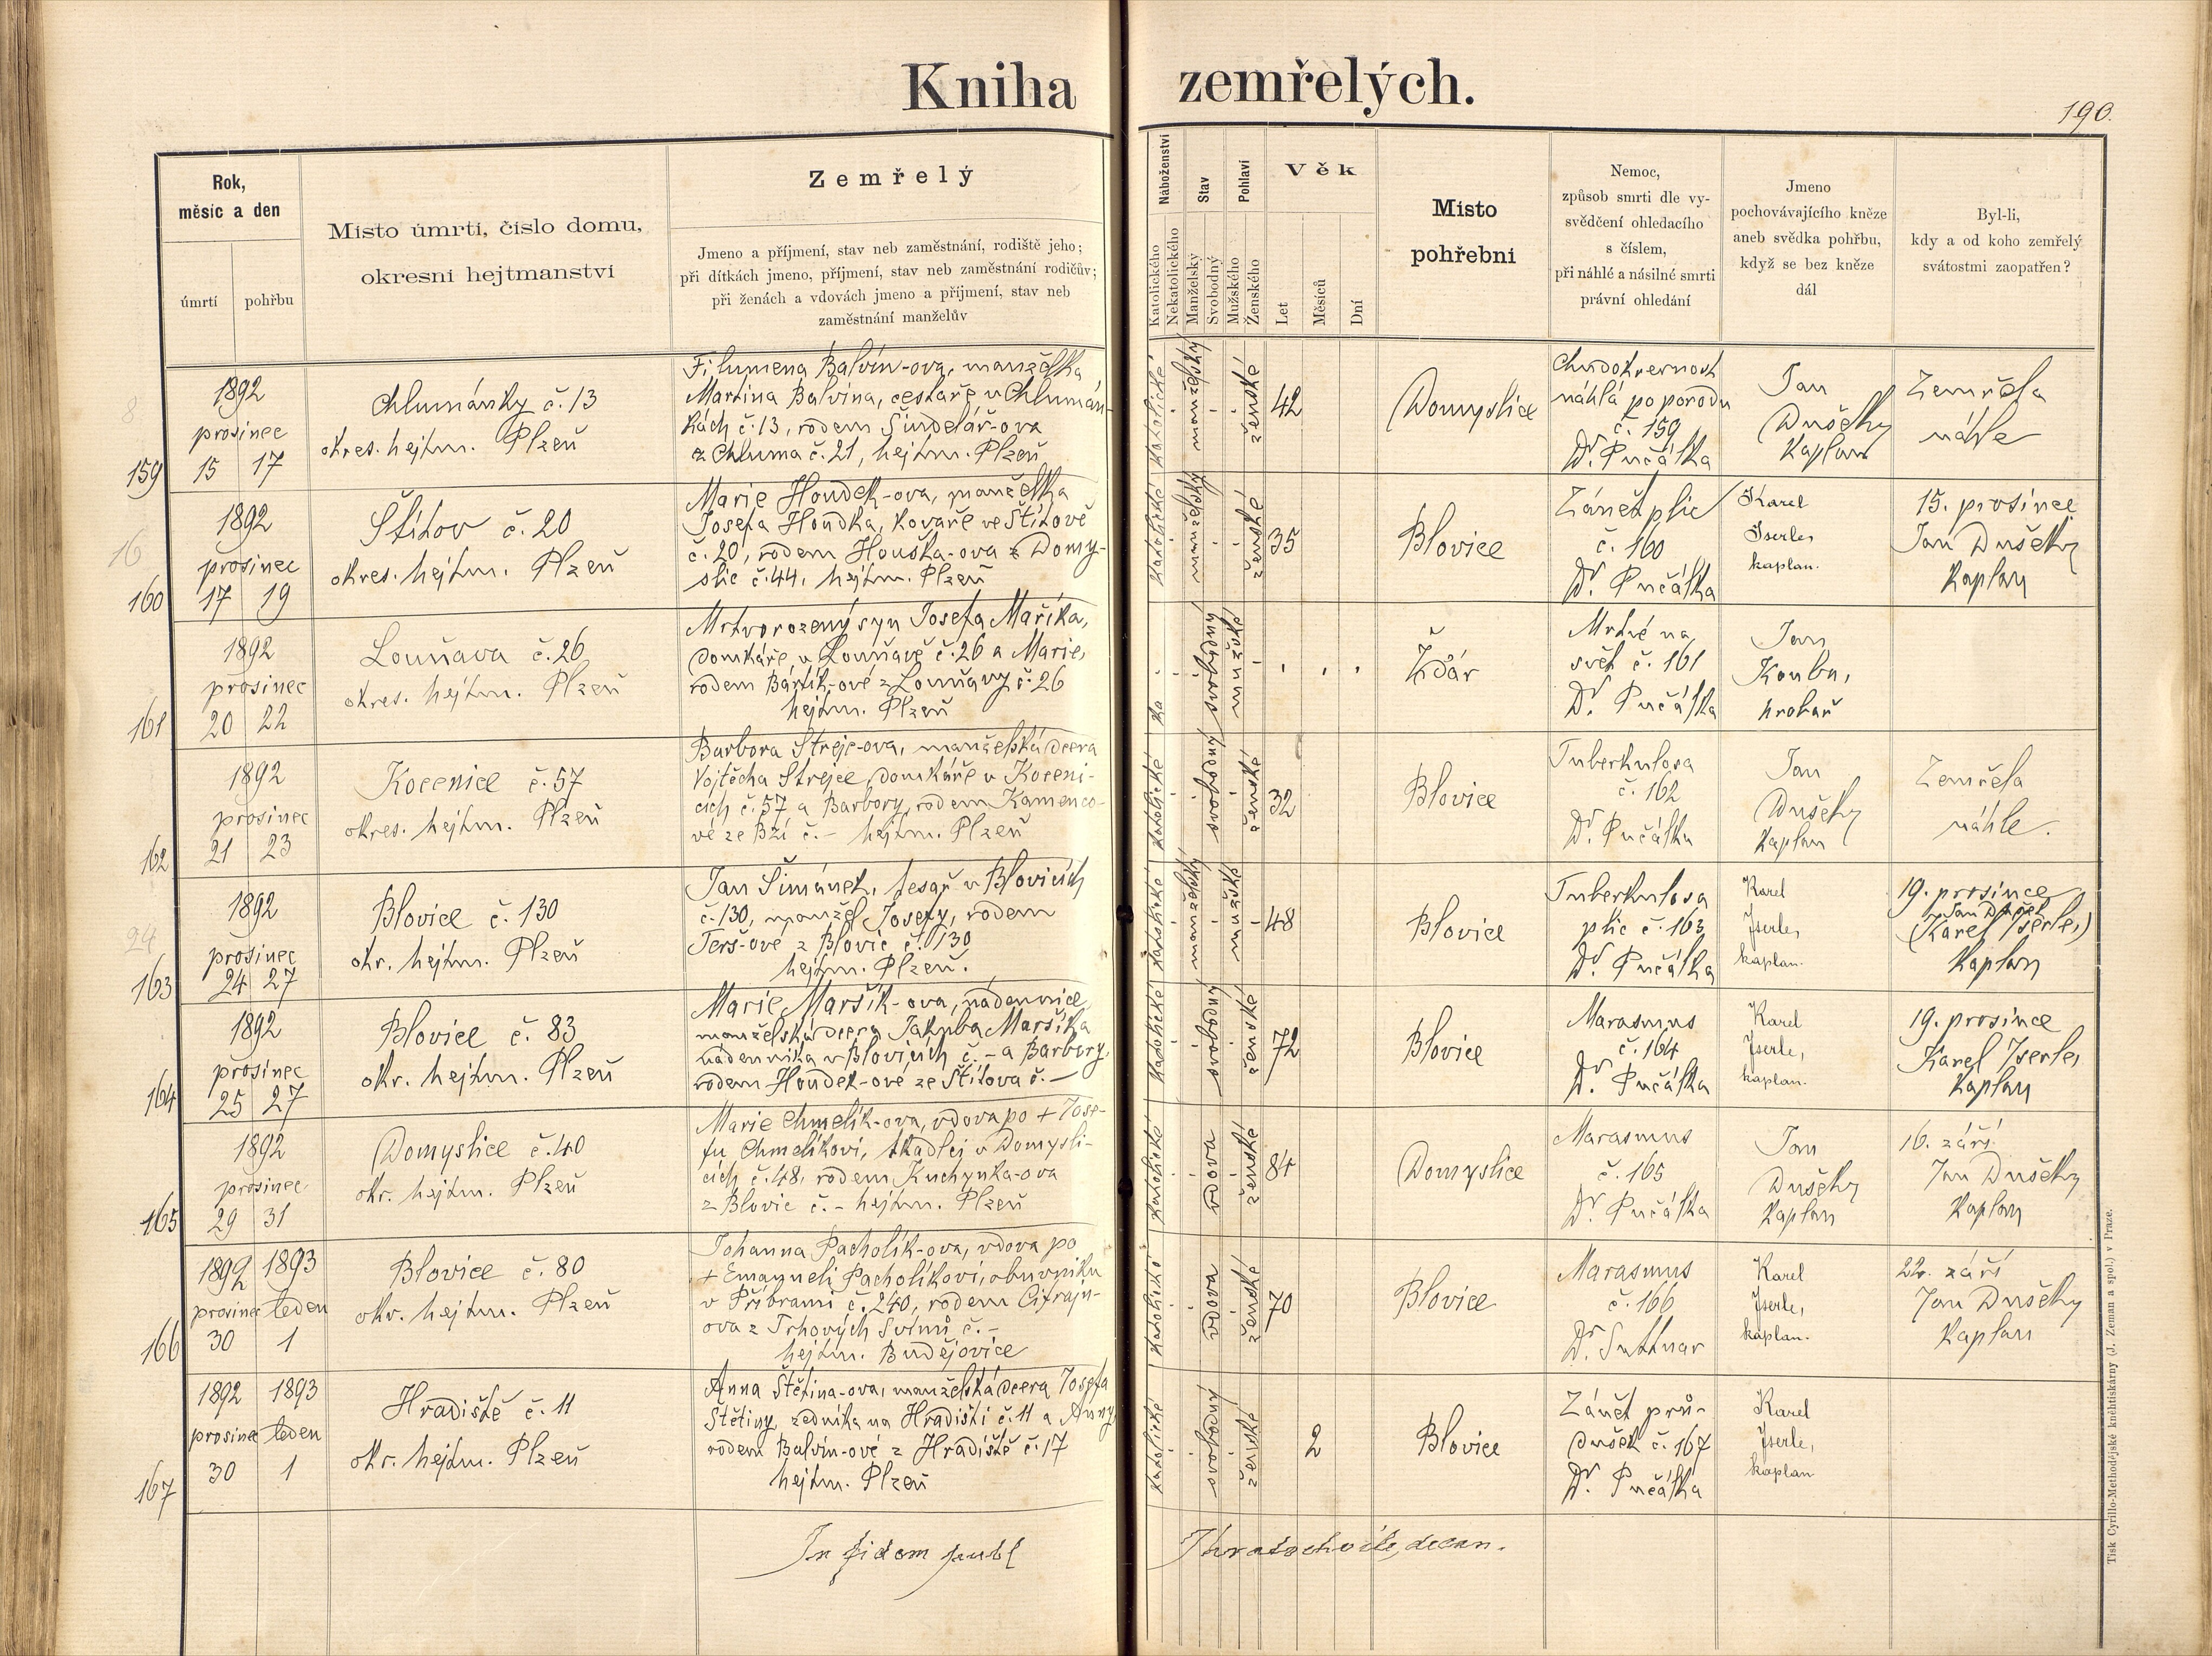 Kniha zemřelých.
190.
Rok,
měsíc a den
úmrtí
pohřbu
Místo úmrtí, číslo domu,
okresní hejtmanství
Zemřelý
Jmeno a příjmení, stav neb zaměstnání, rodiště jeho;
při dítkách jmeno, příjmení, stav neb zaměstnání rodičův;
při ženách a vdovách jmeno a příjmení, stav neb
zaměstnání manželův
Náboženství
Katolického
Nekatolického
Stav
Manželský
Svobodný
Pohlaví
Mužského
Ženského
Věk
Let
Měsíců
Dní
Místo
pohřební
Nemoc,
způsob smrti dle vy-
svědčení ohledacího
s číslem,
při náhlé a násilné smrti
právní ohledání
Jmeno
pochovávajícího kněze
aneb svědka pohřbu,
když se bez kněze
dál
Byl-li,
kdy a od koho zemřelý
svátostmi zaopatřen?
8
159
1892
prosinec
15 17
Chlumánky č. 13
okres. hejtm. Plzeň
Filumena Balvín-ova, manželka
Martina Balvína, cestaře v Chlumán-
kách č. 13, rodem Šindelář-ova
z Chluma č. 21, hejtm. Plzeň
katolické
manželský
ženské
42
Domyslice
Chudokrevnost
náhlá po porodu
č. 159
Dr. Pučálka
Jan
Dušek,
Kaplan
Zemřela
náhle
16
160
1892
prosinec
17 19
Štítov č. 20
okres. hejtm. Plzeň
Marie Houdek-ova, manželka
Josefa Houdka, kováře ve Štítově
č. 20, rodem Houška-ova z Domy-
slic č. 44, hejtm. Plzeň
katolické
manželský
ženské
35
Blovice
Zánět plic
č. 160
Dr. Pučálka
Karel
Iserle,
kaplan.
15. prosince
Jan Dušek,
Kaplan
161
1892
prosinec
20 22
Louňava č. 26
okres. hejtm. Plzeň
Mrtvorozený syn Josefa Maříka,
domkáře v Louňavě č. 26 a Marie,
rodem Bartík-ové z Louňavy č. 26
hejtm. Plzeň
ka
svobodný
mužské
Ždár
Mrtvé na
svět č. 161
Dr. Pučálka
Jan
Kouba,
hrobař
162
1892
prosinec
21 23
Kocenice č. 57
okres. hejtm. Plzeň
Barbora Strejc-ova, manželská dcera
Vojtěcha Strejce, domkáře v Koceni-
cích č. 57 a Barbory, rodem Kamenco-
vé ze Bzí č. - hejtm. Plzeň
katolické
svobodný
ženské
32
Blovice
Tuberkulosa
č. 162
Dr. Pučálka
Jan
Dušek,
Kaplan
Zemřela
náhle.
24
163
1892
prosinec
24 27
Blovice č. 130
okr. hejtm. Plzeň
Jan Šimánek, tesař v Blovicích
č. 130, manžel Josefy, rodem
Terš-ové z Blovic č. 130
hejtm. Plzeň.
katolické
manželský
mužské
48
Blovice
Tuberkulosa
plic č. 163
Dr. Pučálka
Karel
Iserle,
kaplan.
19. prosince
Jan Dušek
(Karel Iserle,)
Kaplan
164
1892
prosinec
25 27
Blovice č. 83
okr. hejtm. Plzeň
Marie Maršík-ova, nádennice,
manželská dcera Jakuba Maršíka
nádenníka v Blovicích č. - a Barbory,
rodem Houdek-ové ze Štítova č. -
katolické
svobodný
ženské
72
Blovice
Marasmus
č. 164
Dr. Pučálka
Karel
Iserle,
kaplan.
19. prosince
Karel Iserle,
Kaplan
165
1892
prosinec
29 31
Domyslice č. 40
okr. hejtm. Plzeň
Marie Chmelík-ova, vdova po + Jose-
fu Chmelíkovi, tkadlci v Domysli-
cích č. 48, rodem Kuchynka-ova
z Blovic č. - hejtm. Plzeň
katolické
vdova
ženské
84
Domyslice
Marasmus
č. 165
Dr. Pučálka
Jan
Dušek,
Kaplan
16. září
Jan Dušek,
Kaplan
166
1892 1893
prosinec leden
30 1
Blovice č. 80
okr. hejtm. Plzeň
Johanna Pacholík-ova, vdova po
+ Emanueli Pacholíkovi, obuvníku
v Příbrami č. 240, rodem
ova z Trhových Svinů č. -
hejtm. Budějovice
katolické
vdova
ženské
70
Blovice
Marasmus
č. 166
Dr. Suttnar
Karel
Iserle,
kaplan.
22. září
Jan Dušek,
Kaplan
167
1892 1893
prosinec leden
30 1
Hradiště č. 11
okr. hejtm. Plzeň
Anna Štětina-ova, manželská dcera Josefa
Štětiny, zedníka na Hradišti č. 11 a Anny,
rodem Balvín-ové z Hradiště č. 17
hejtm. Plzeň
katolické
svobodný
ženské
2
Blovice
Zánět prů-
dušek č. 167
Dr. Pučálka
Karel
Iserle,
kaplan
In fidem publ
decan.
Tisk Cyrillo-Methodějské knihtiskárny (J. Zeman a spol.) v Praze.